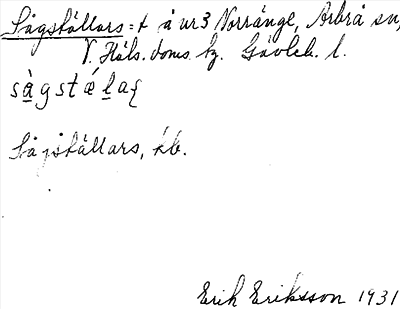 Sågställars = t å nr 3 Norränge, Arbrå sn,
V. Häls. doms. hg. Gävleb. l.
sàgstǽlaʃ
Sågställars, kb.
Erik Eriksson 1931